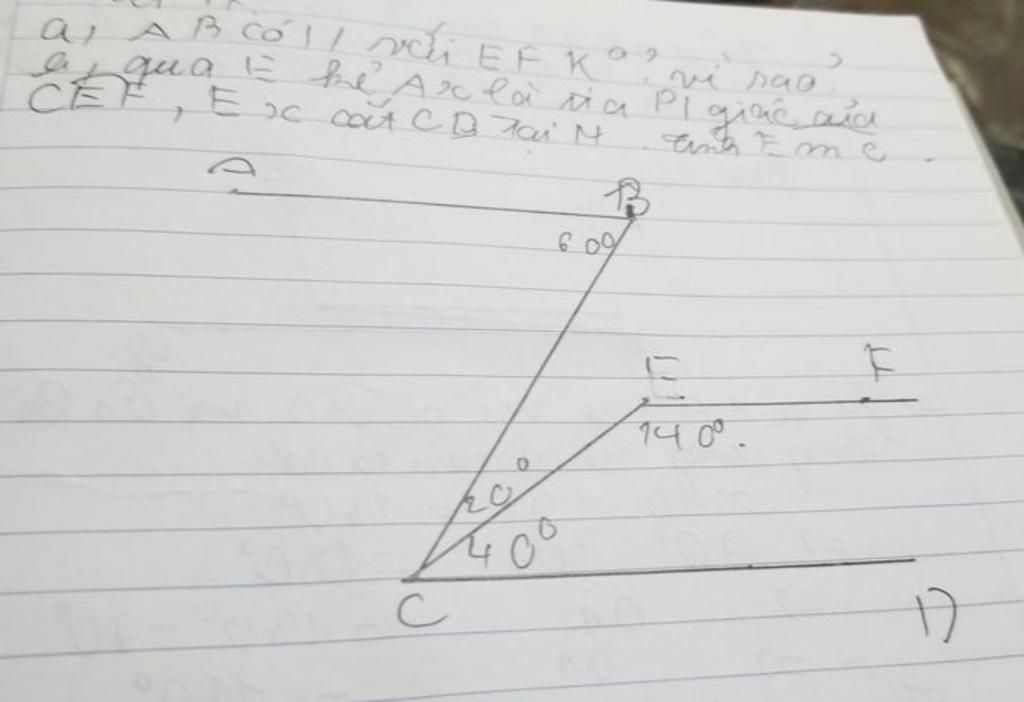 a, AB có // với EF K° ? vì sao ?
qua E kẻ Ax là tia P/giác của
CEF, Ex cắt CD tại M. tính Emc.
A
B
60°
E
F
140°.
20°
40°
C
D